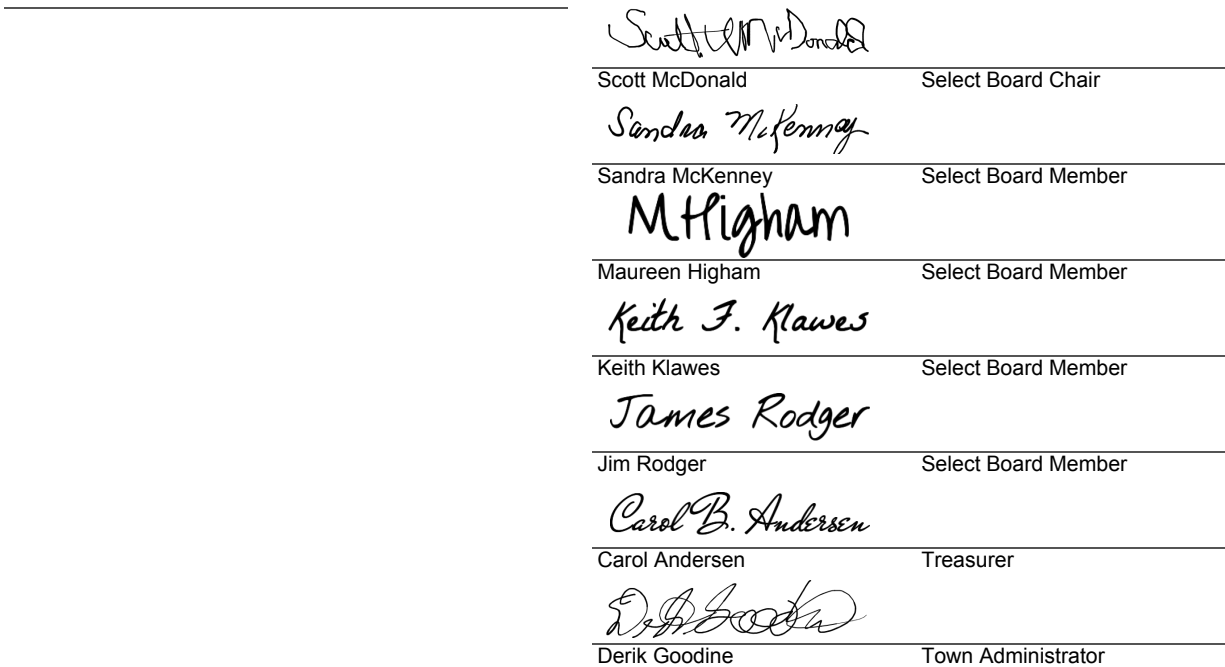 Scott McDonald
Scott McDonald Select Board Chair
Sandra McKenney
Sandra McKenney Select Board Member
MHigham
Maureen Higham Select Board Member
Keith F. Klawes
Keith Klawes Select Board Member
James Rodger
Jim Rodger Select Board Member
Carol B. Andersen
Carol Andersen Treasurer
Derik Goodine Town Administrator